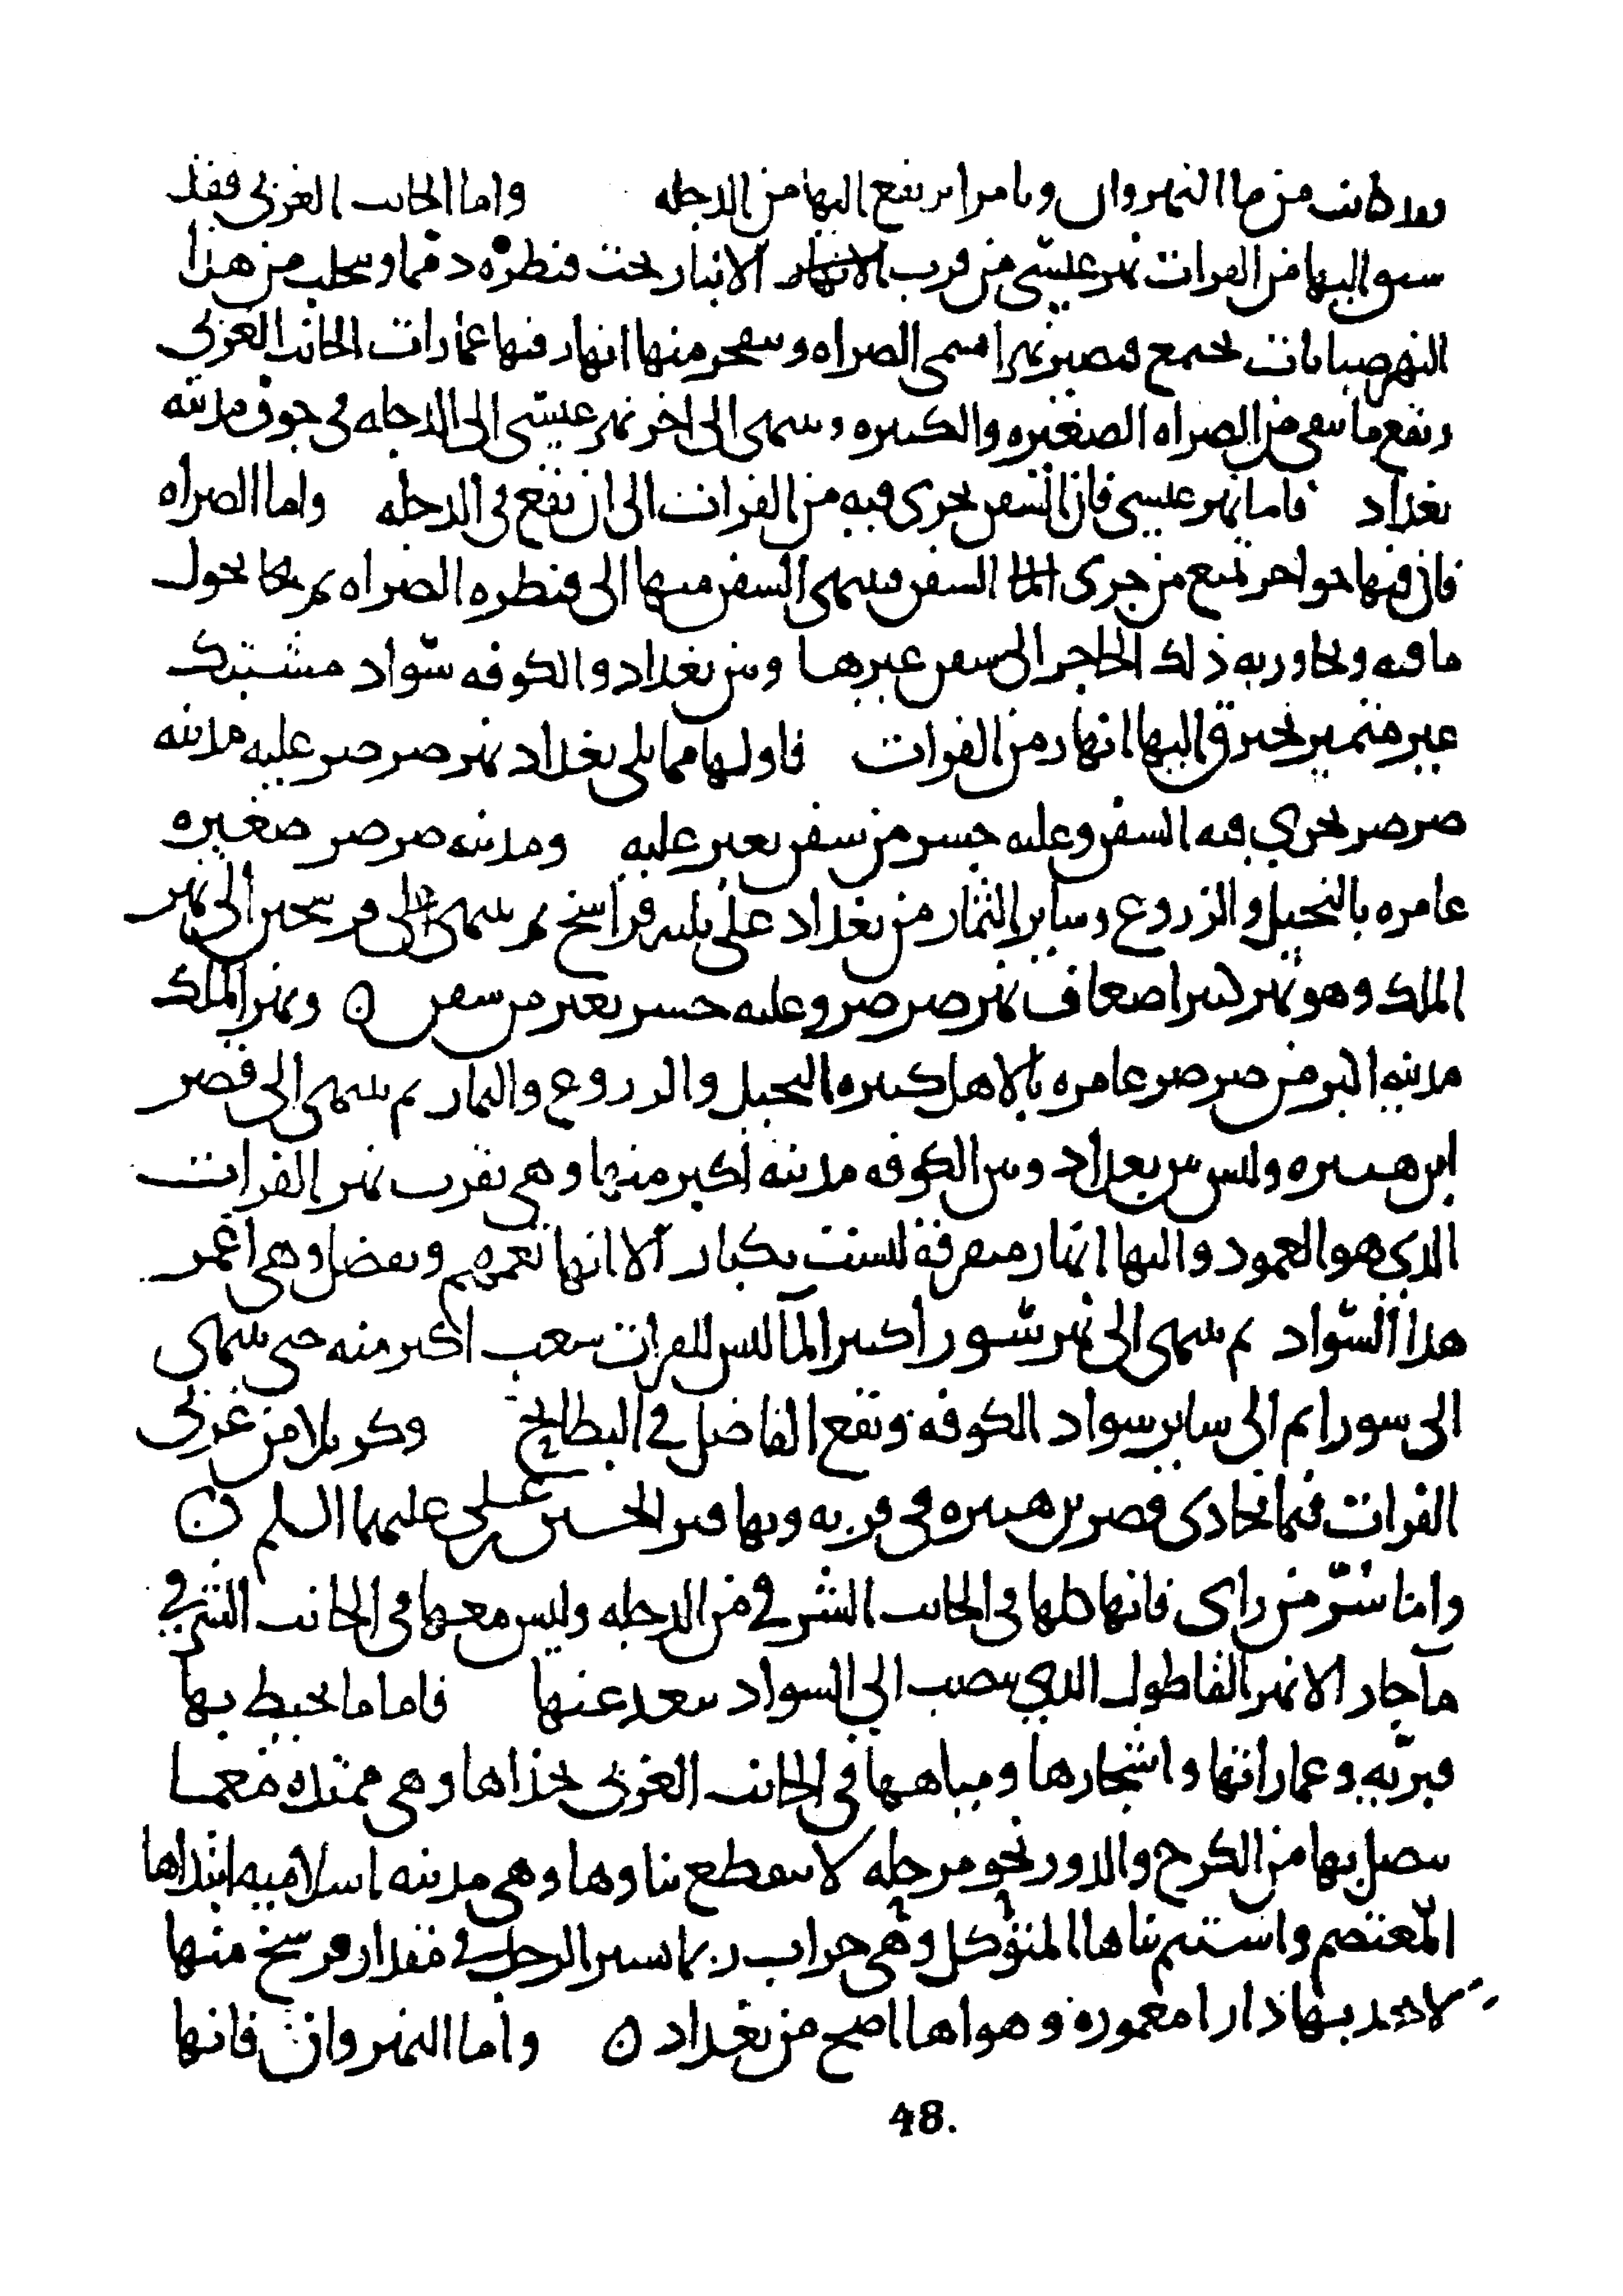 من ما النهروان وتامرا يرتفع اليها من الدجله واما الجانب الغربى فقد
اليها من الفرات نهر عيسى من قرب الانبار تحت قنطره دمما ويتحلب من هذا
النهر صبابات تجتمع فيصير نهرا يسمى الصراه ويتفجر منها انهار فيها عمارات الجانب الغربي
ويقع ما يبقى من الصراه الصغيره والكبيره وينتهى الى اخر نهر عيسى الى الدجله في جوف مدينه
بغداد فاما نهر عيسى فان السفن تجرى فيه من الفرات الى ان تقع في الدجله واما الصراه
فان فيها حواجز تمنع من جرى السفن فينتهى السفن منها الى قنطره الصراه ثم يحول
ما فيه ويجاوز به ذلك الحاجز الى سفن غيرها وبين بغداد والكوفه سواد مشتبك
غير متميز تخترق اليها انهار من الفرات فاولها مما يلي بغداد نهر صرصر عليه مدينه
صرصر تجري فيه السفن وعليه جسر من سفن يعبر عليه ومدينه صرصر صغيره
عامره بالنخيل والزروع وساير الثمار من بغداد على ثلثه فراسخ ثم ينتهى على فرسخين الى نهر
الملك وهو نهر كبير اضعاف نهر صرصر وعليه جسر يعبر من سفن ه ونهر الملك
مدينه اكبر من صرصر عامره بالاهل كثيره النخيل والزروع والثمار ثم ينتهى الى قصر
ابن هبيره وليس بين بغداد وبين الكوفه مدينه اكبر منها وهي بقرب نهر الفرات
الذي هو العمود واليها انهار متفرقة ليست بكبار الا انها تعمهم وتفضل وهي اعمر
هذا السواد ثم ينتهى الى نهر سورا كثير الما ليس للفرات شعب اكبر منه حتى ينتهى
الى سورا ثم الى ساير سواد الكوفه ويقع الفاضل في البطايح وكربلا من غربي
الفرات فيما يحاذى قصر بن هبيره في قريه وبها قبر الحسين بن على عليهما السلم ه
واما سر من راى فانها كلها في الجانب الشرقي من الدجله وليس معها في الجانب الشرقي
ما جار الا نهر القاطول الذي يصب الى السواد بعد عنها فاما ما يحيط بها
فبريه وعماراتها واشجارها ومياهها في الجانب الغربى بحذاها وهي ممتده فمعما
يتصل بها من الكرخ والدور نحو مرحله لا ينقطع بناوها وهي مدينه اسلاميه ابتداها
المعتصم واستتم بناها المتوكل وهي خراب ربما يسير الرجل في مقدار فرسخ منها
لا يجد بها دارا معموره وهواها اصح من بغداد ه واما النهروان فانها
48.